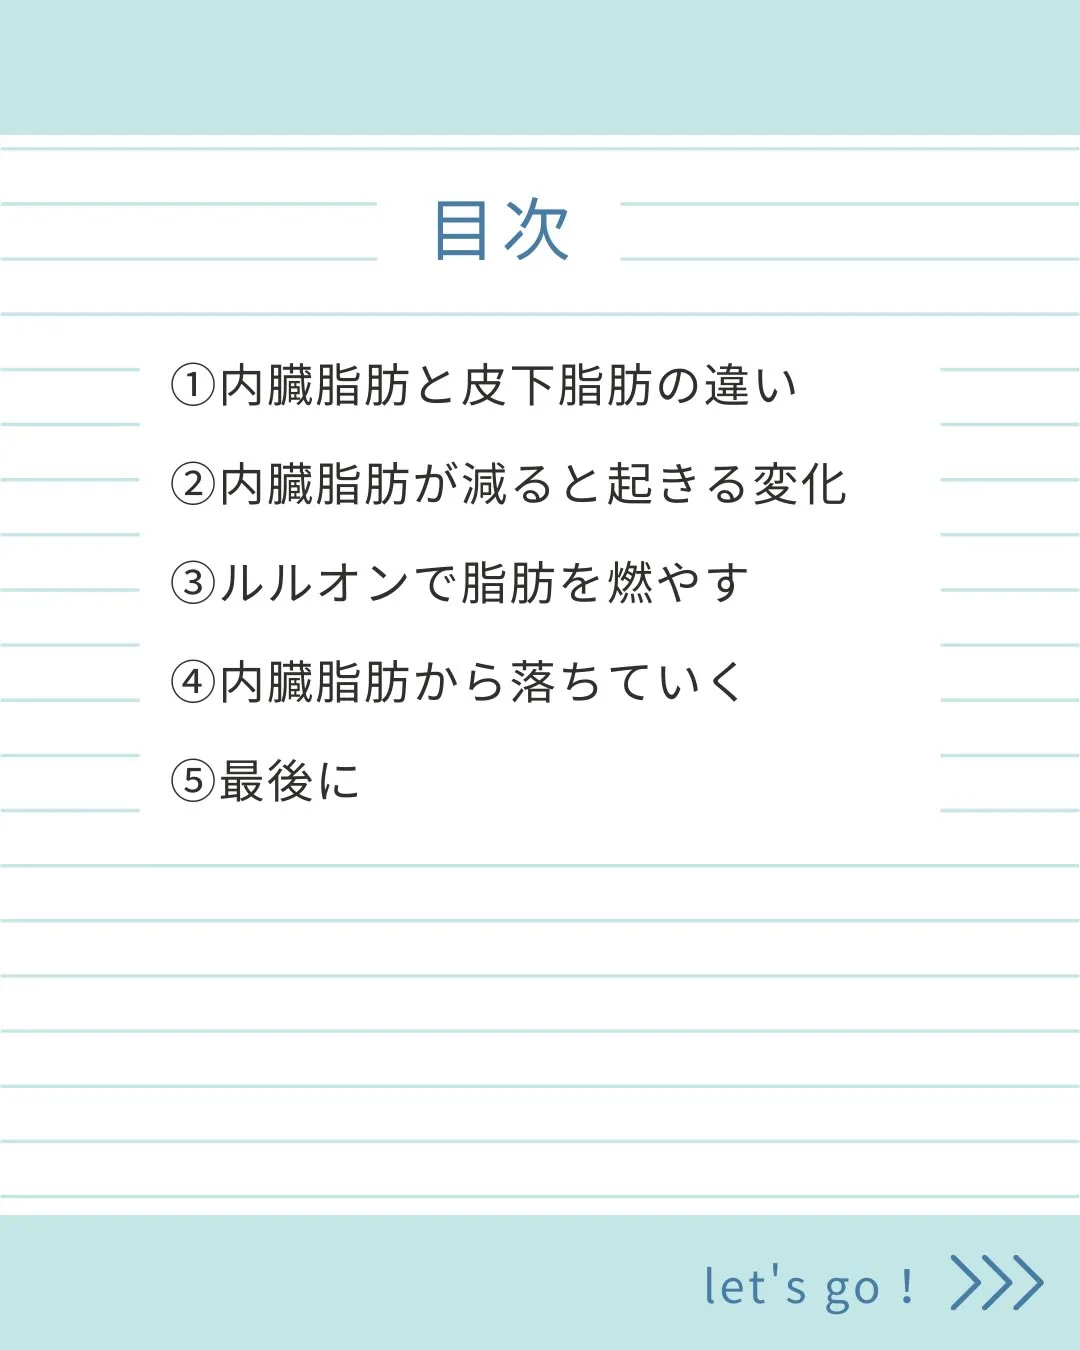 目次
①内臓脂肪と皮下脂肪の違い
②内臓脂肪が減ると起きる変化
③ルルオンで脂肪を燃やす
④内臓脂肪から落ちていく
⑤最後に
let's go !